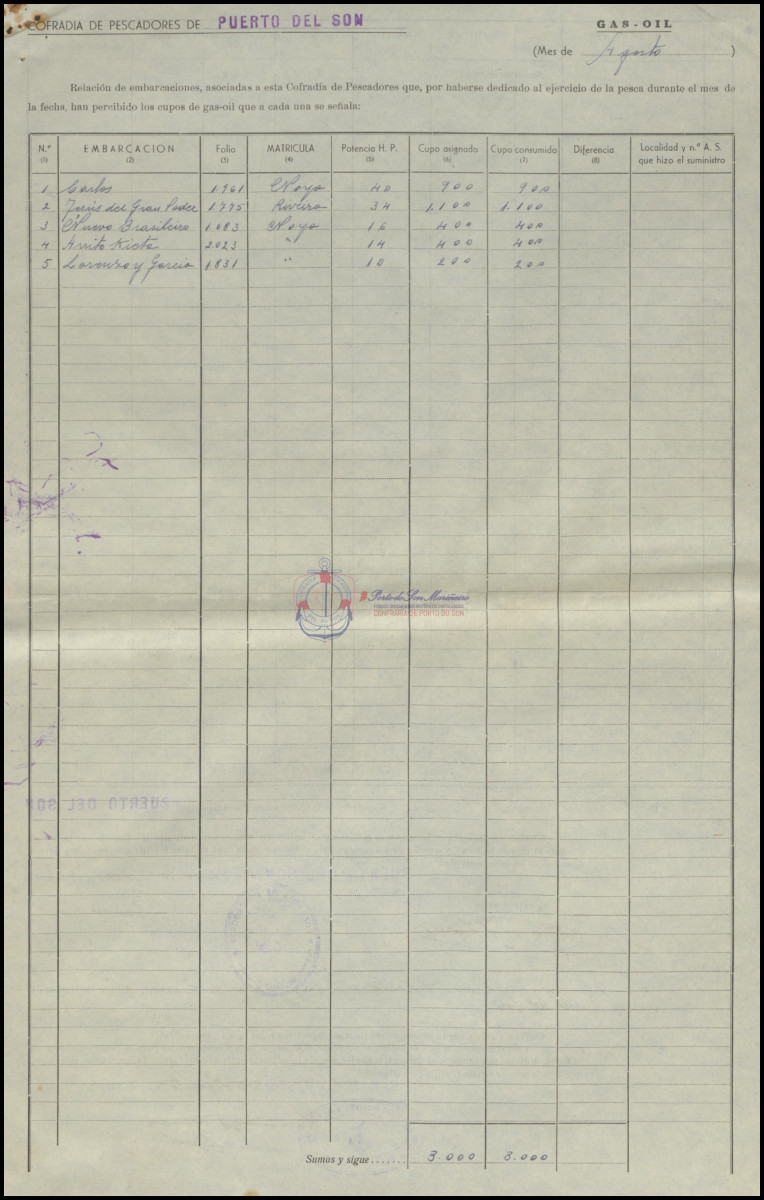 COFRADIA DE PESCADORES DE PUERTO DEL SON
GAS-OIL
(Mes de Agosto )
Relación de embarcaciones, asociadas a esta Cofradía de Pescadores que, por haberse dedicado al ejercicio de la pesca durante el mes de
la fecha, han percibido los cupos de gas-oil que a cada una se señala:
N.º EMBARCACION Folio MATRICULA Potencia H. P. Cupo asignado Cupo consumido Diferencia Localidad y n.º A. S.
(1) (2) (3) (4) (5) (6) (7) (8) que hizo el suministro
1 Carlos 1.961 Noya 40 900 900
2 Jesús del Gran Poder 1.775 Riveira 34 1.100 1.100
3 Nuevo Brasileiro 1.083 Noya 16 400 400
4 Anita 2.023 " 14 400 400
5 Lorenzo y Garcia 1.831 " 10 200 200
Porto do Son Mariñeiro
CONFRARÍA DE PORTO DO SON
PUERTO DEL SON
Sumas y sigue....... 3.000 3.000